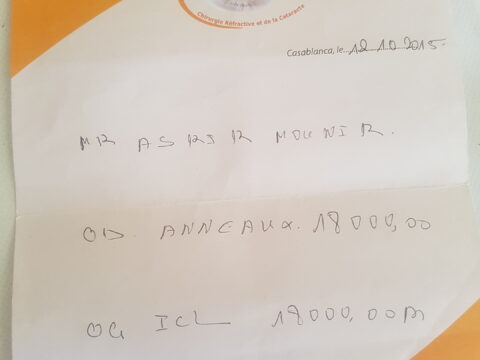 Chirurgie Réfractive et de la Cataracte
Casablanca, le 12.10.2015.
MR ASRIR MOUNIR.
OD. ANNEAUX. 18000,00
OG ICL 18000,00